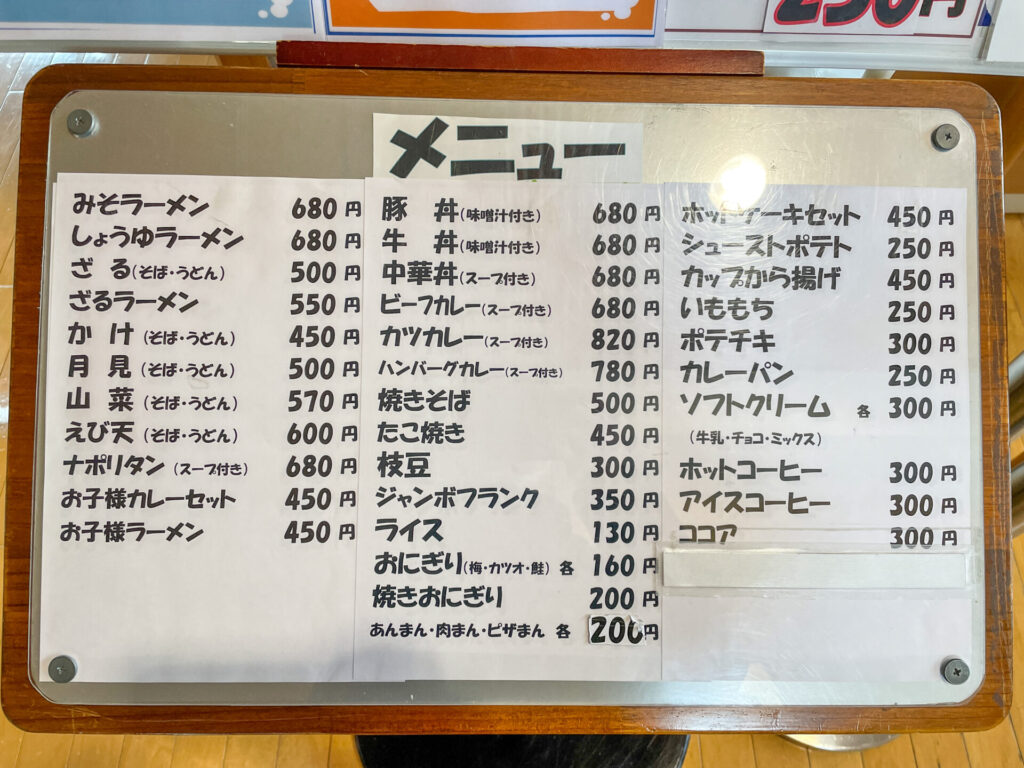 250円
メニュー
みそラーメン 680円
しょうゆラーメン 680円
ざる(そば・うどん) 500円
ざるラーメン 550円
かけ(そば・うどん) 450円
月見(そば・うどん) 500円
山菜(そば・うどん) 570円
えび天(そば・うどん) 600円
ナポリタン(スープ付き) 680円
お子様カレーセット 450円
お子様ラーメン 450円
豚丼(味噌汁付き) 680円
牛丼(味噌汁付き) 680円
中華丼(スープ付き) 680円
ビーフカレー(スープ付き) 680円
カツカレー(スープ付き) 820円
ハンバーグカレー(スープ付き) 780円
焼きそば 500円
たこ焼き 450円
枝豆 300円
ジャンボフランク 350円
ライス 130円
おにぎり(梅・カツオ・鮭) 各 160円
焼きおにぎり 200円
あんまん・肉まん・ピザまん 各 200円
ホットケーキセット 450円
シューストポテト 250円
カップから揚げ 450円
いももち 250円
ポテチキ 300円
カレーパン 250円
ソフトクリーム 各 300円
(牛乳・チョコ・ミックス)
ホットコーヒー 300円
アイスコーヒー 300円
ココア 300円